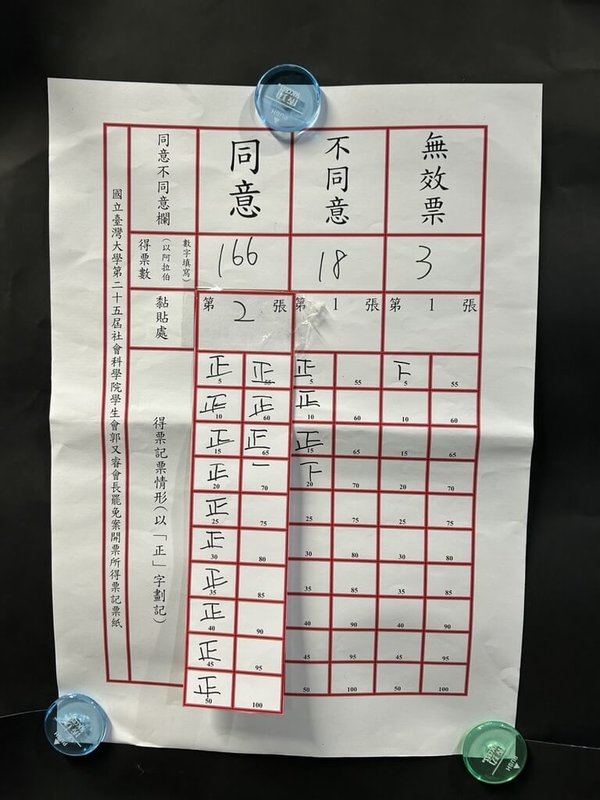 國立臺灣大學第二十五屆社會科學院學生會郭又睿會長罷免案開票所得票記票紙
同意不同意欄
同意
不同意
無效票
得票數
(以阿拉伯
數字填寫)
166
18
3
黏貼處
第 2 張
第 1 張
第 1 張
得票記票情形(以「正」字劃記)
正 5 正 55 正 5 55 下 5 55
正 10 正 60 正 10 60 10 60
正 15 正 65 正 15 65 15 65
正 20 一 70 下 20 70 20 70
正 25 75 25 75 25 75
正 30 80 30 80 30 80
正 35 85 35 85 35 85
正 40 90 40 90 40 90
正 45 95 45 95 45 95
正 50 100 50 100 50 100